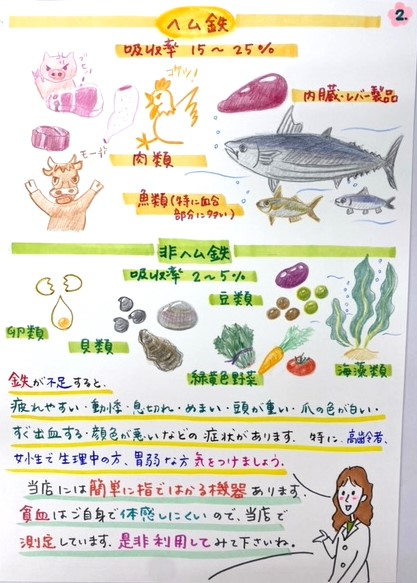 2.
ヘム鉄
吸収率 15～25%
ブヒッ
コケッ!
モー
内臓・レバー製品
肉類
魚類(特に血合
部分に多い)
非ヘム鉄
吸収率 2～5%
卵類
貝類
豆類
緑黄色野菜
海藻類
鉄が不足すると、
疲れやすい・動悸・息切れ・めまい・頭が重い・爪の色が白い・
すぐ出血する・顔色が悪いなどの症状があります。特に、高齢者、
女性で生理中の方、胃弱な方気をつけましょう。
当店には簡単に指ではかる機器あります。
貧血はご自身で体感しにくいので、当店で
測定しています。是非利用してみて下さいね。